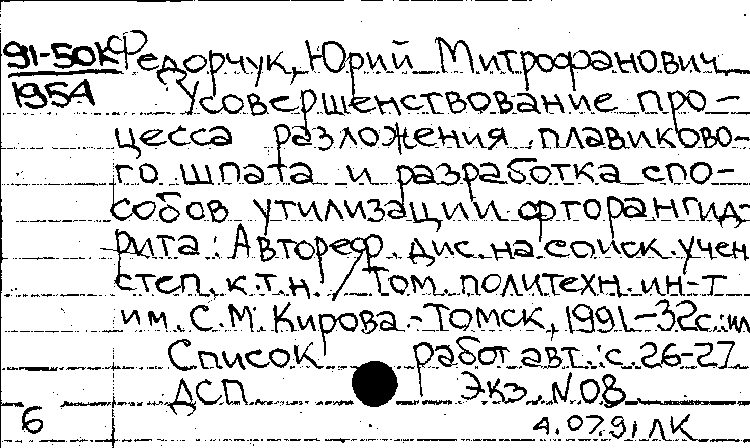 91-50к Федорчук, Юрий Митрофанович
1954 Усовершенствование про-
цесса разложения плавиково-
го шпата и разработка спо-
собов утилизации фторангид-
рита: Автореф. дис. на соиск. учен
степ. к.т.н. / Том. политехн. ин-т
им. С.М. Кирова.-Томск, 1991.-32с.:ил
Список работ авт.: с. 26-27
ДСП Экз. N08
6 4.07.91 ЛК